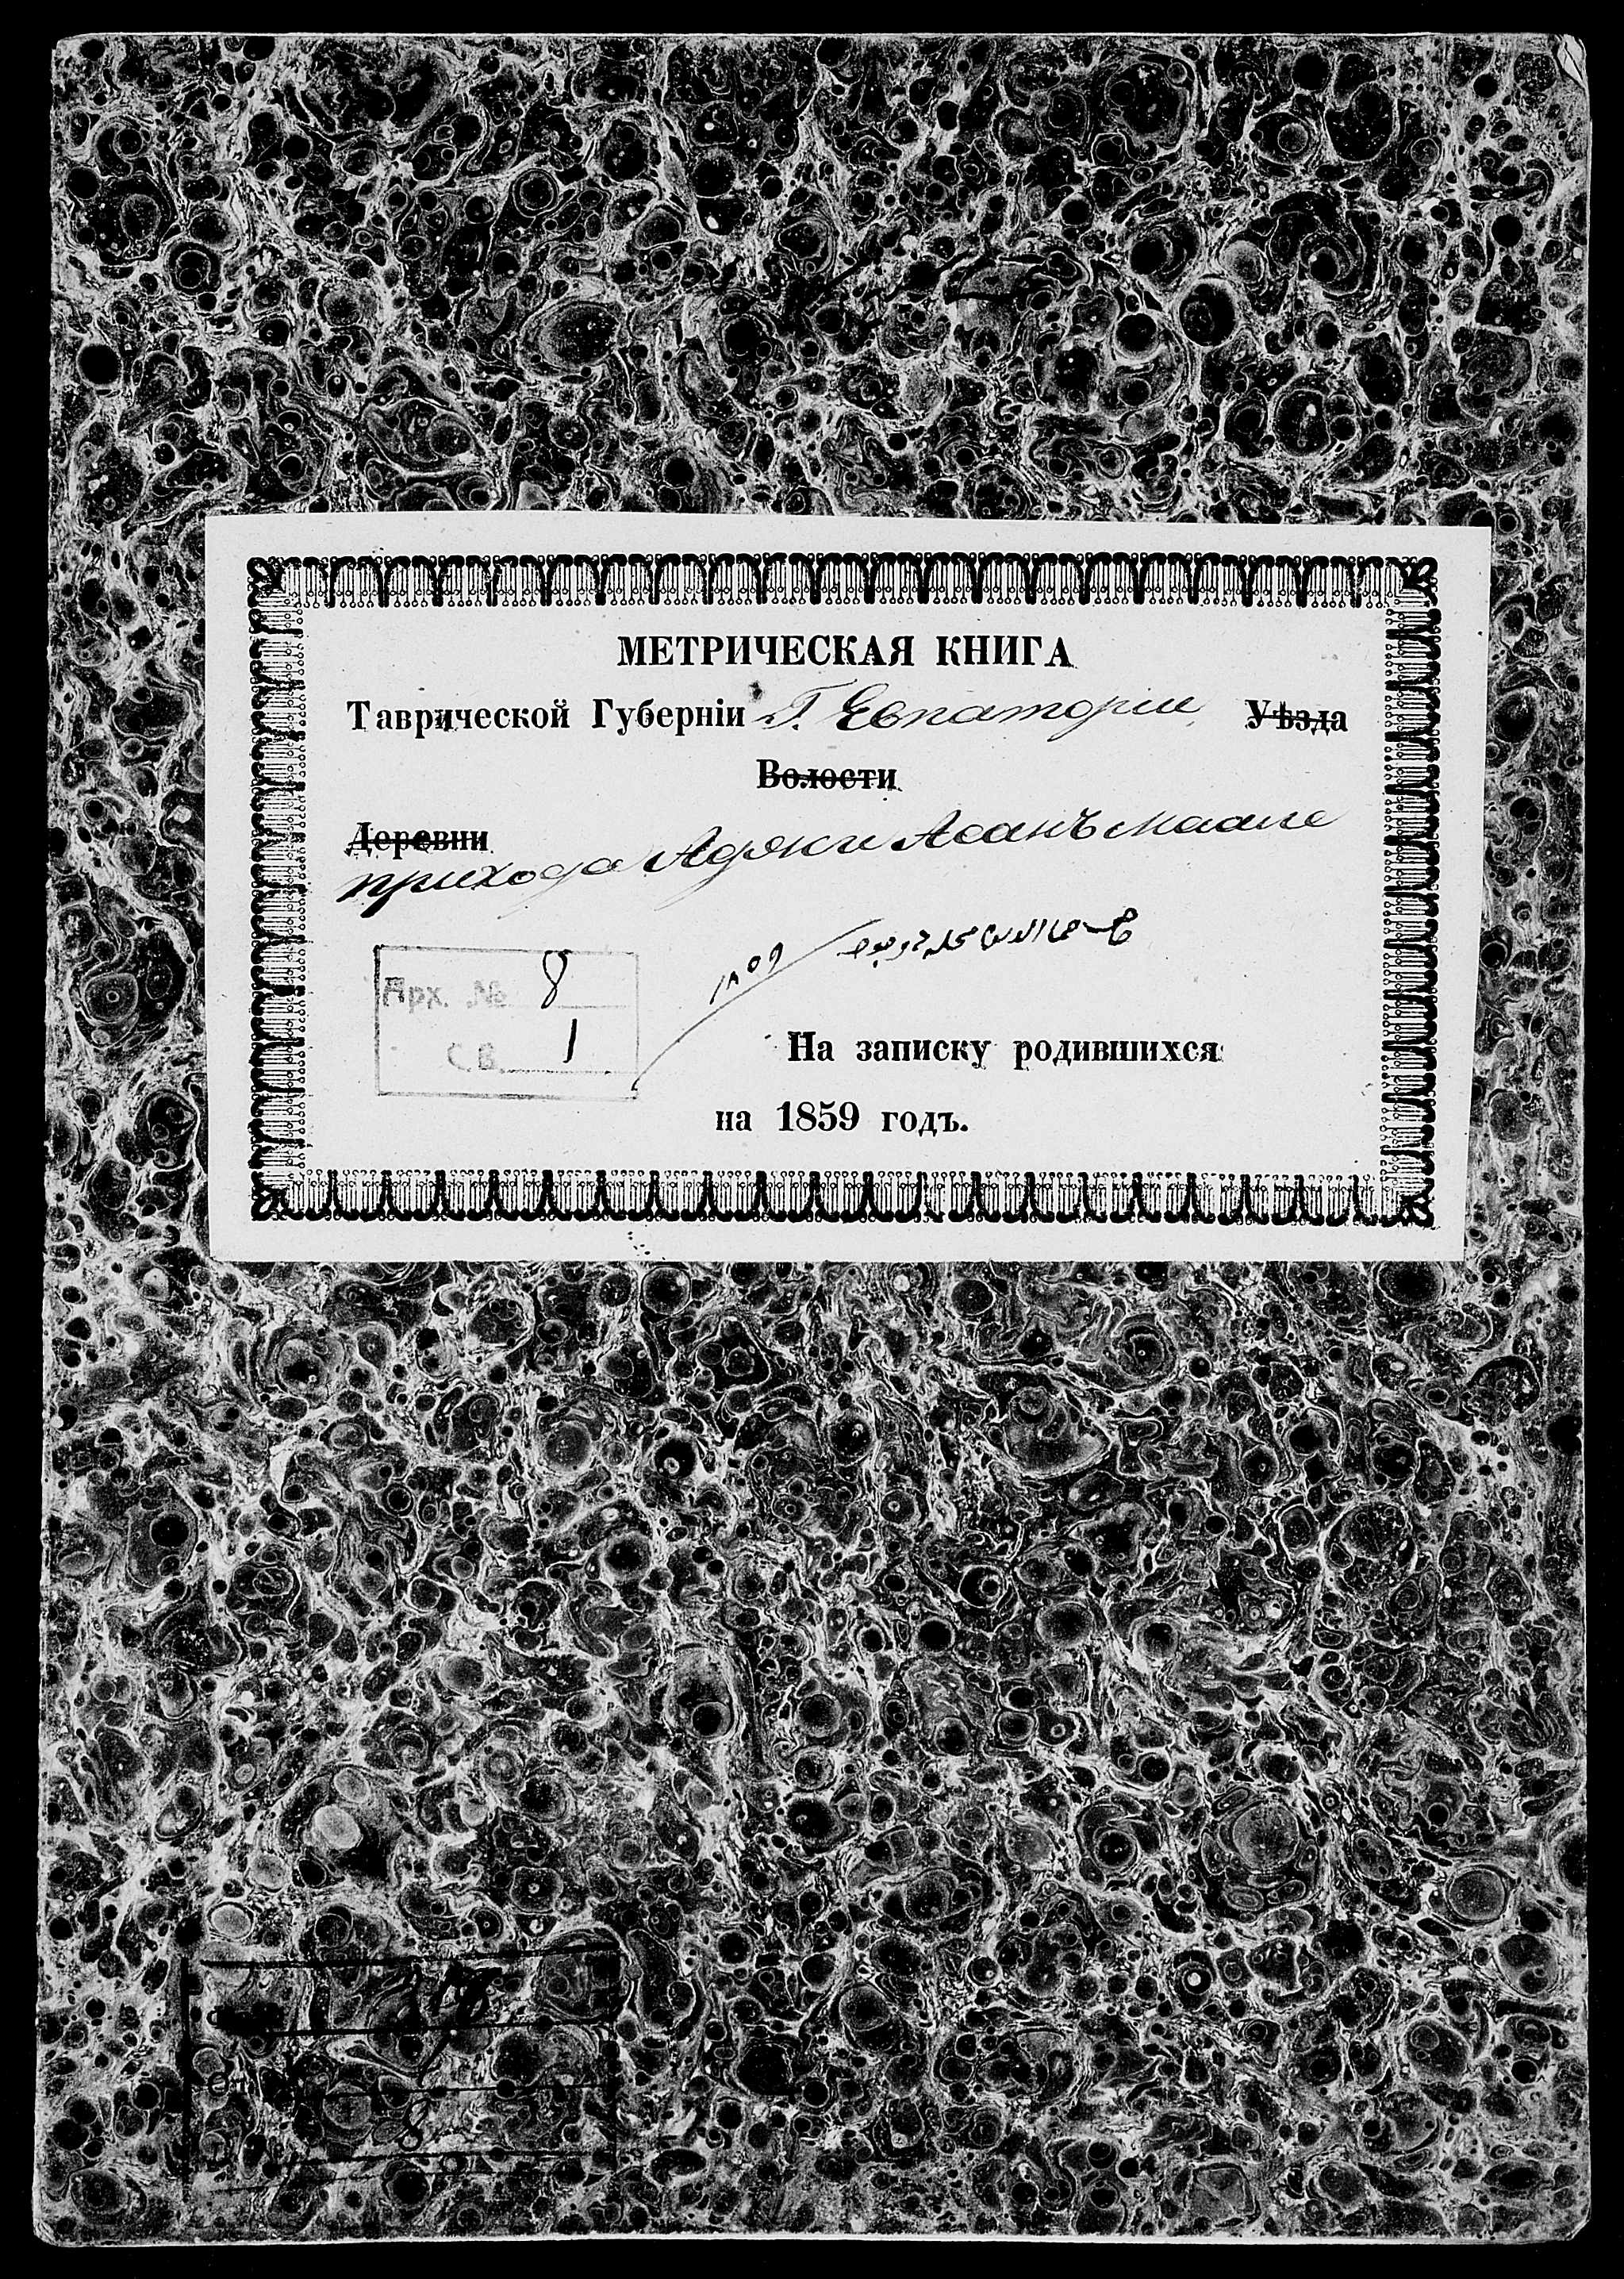 МЕТРИЧЕСКАЯ КНИГА
Таврической Губерніи Г. Евпаторіи Уѣзда
Волости
Деревни
прихода Аджи Асанъ маале
١٨٥٩
Арх. № 8
СВ. 1
На записку родившихся
на 1859 годъ.
8